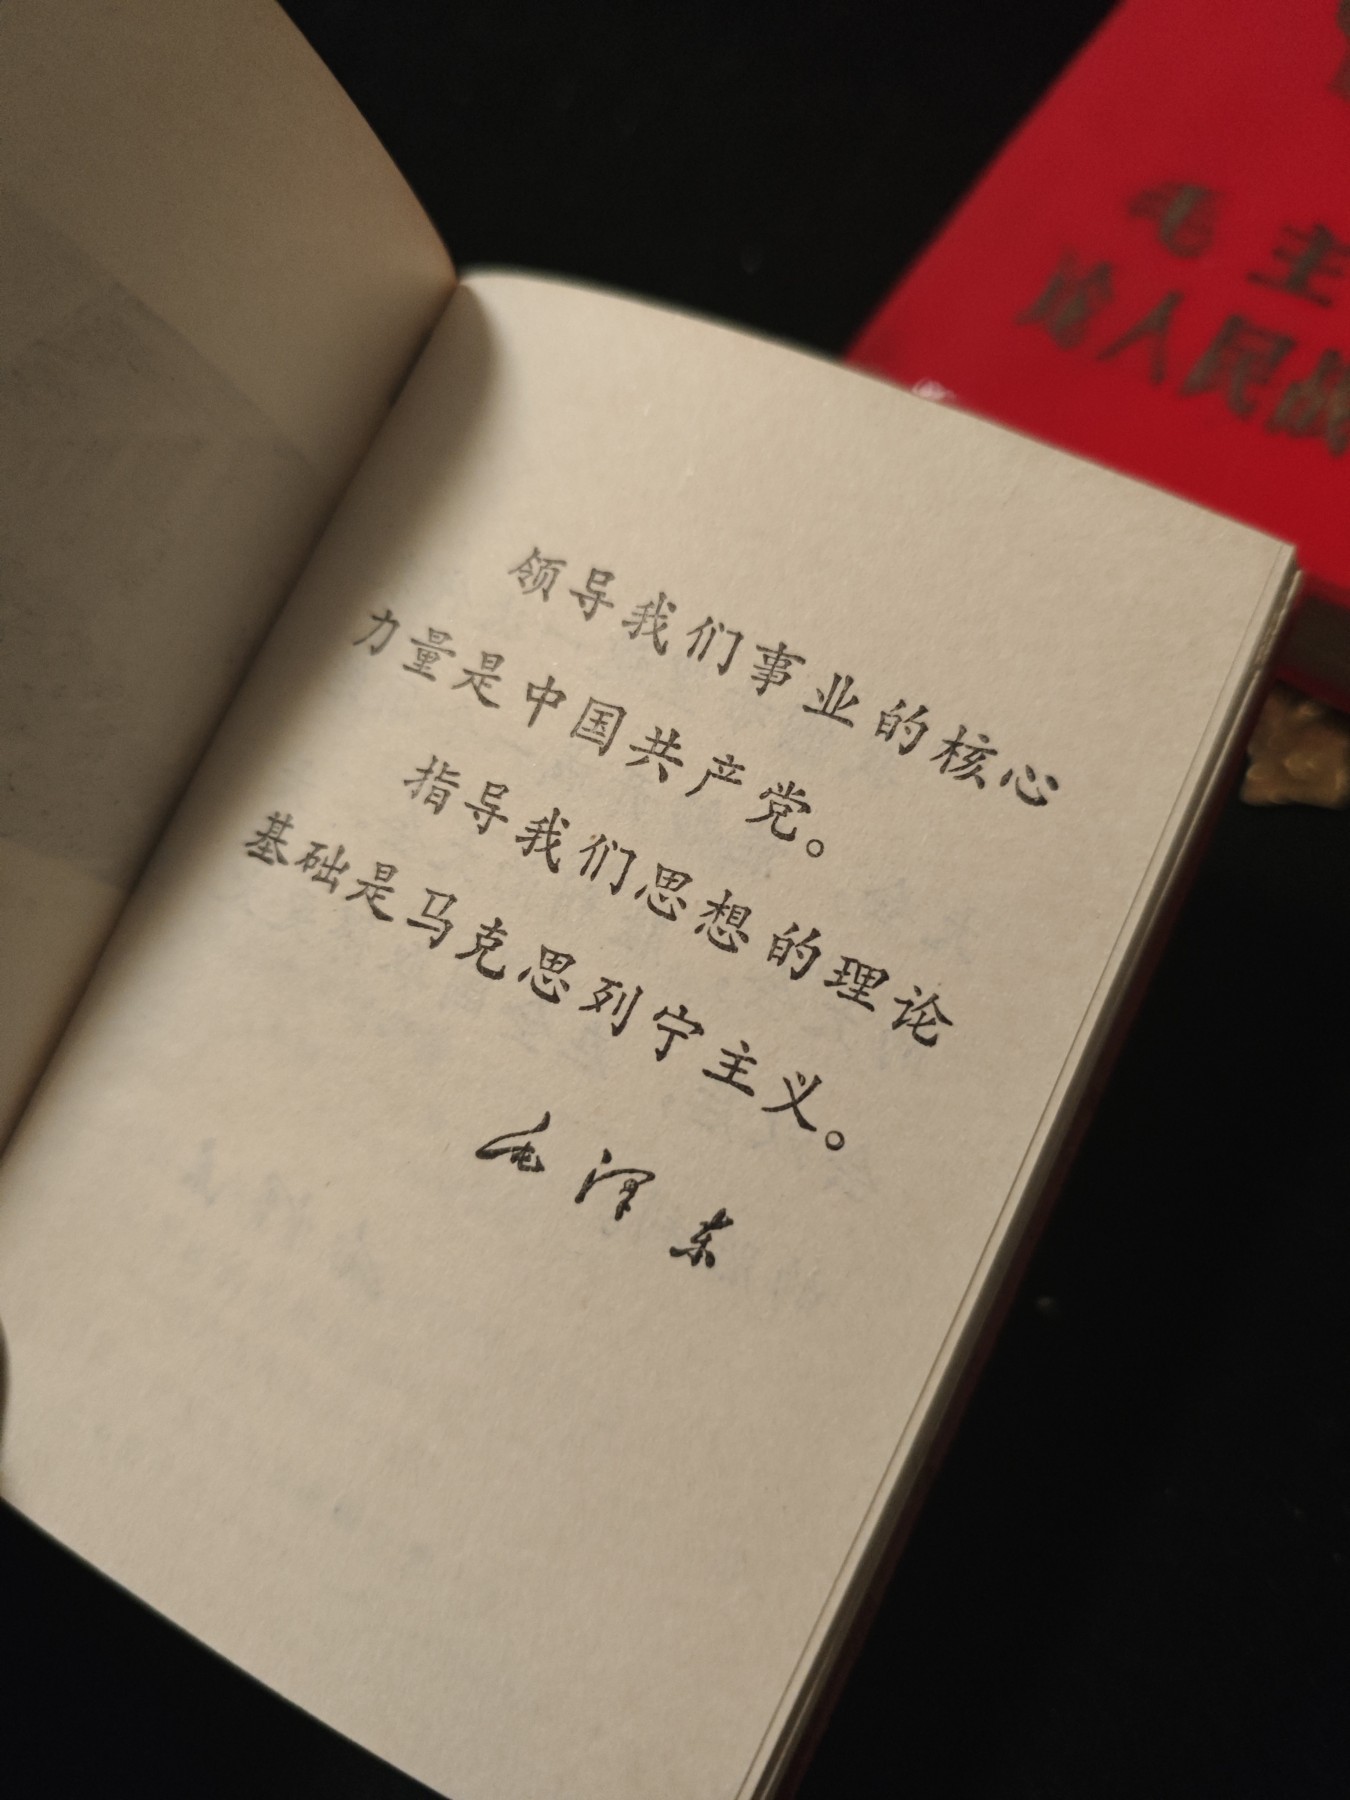 领导我们事业的核心
力量是中国共产党。
指导我们思想的理论
基础是马克思列宁主义。
毛泽东
毛主
论人民战